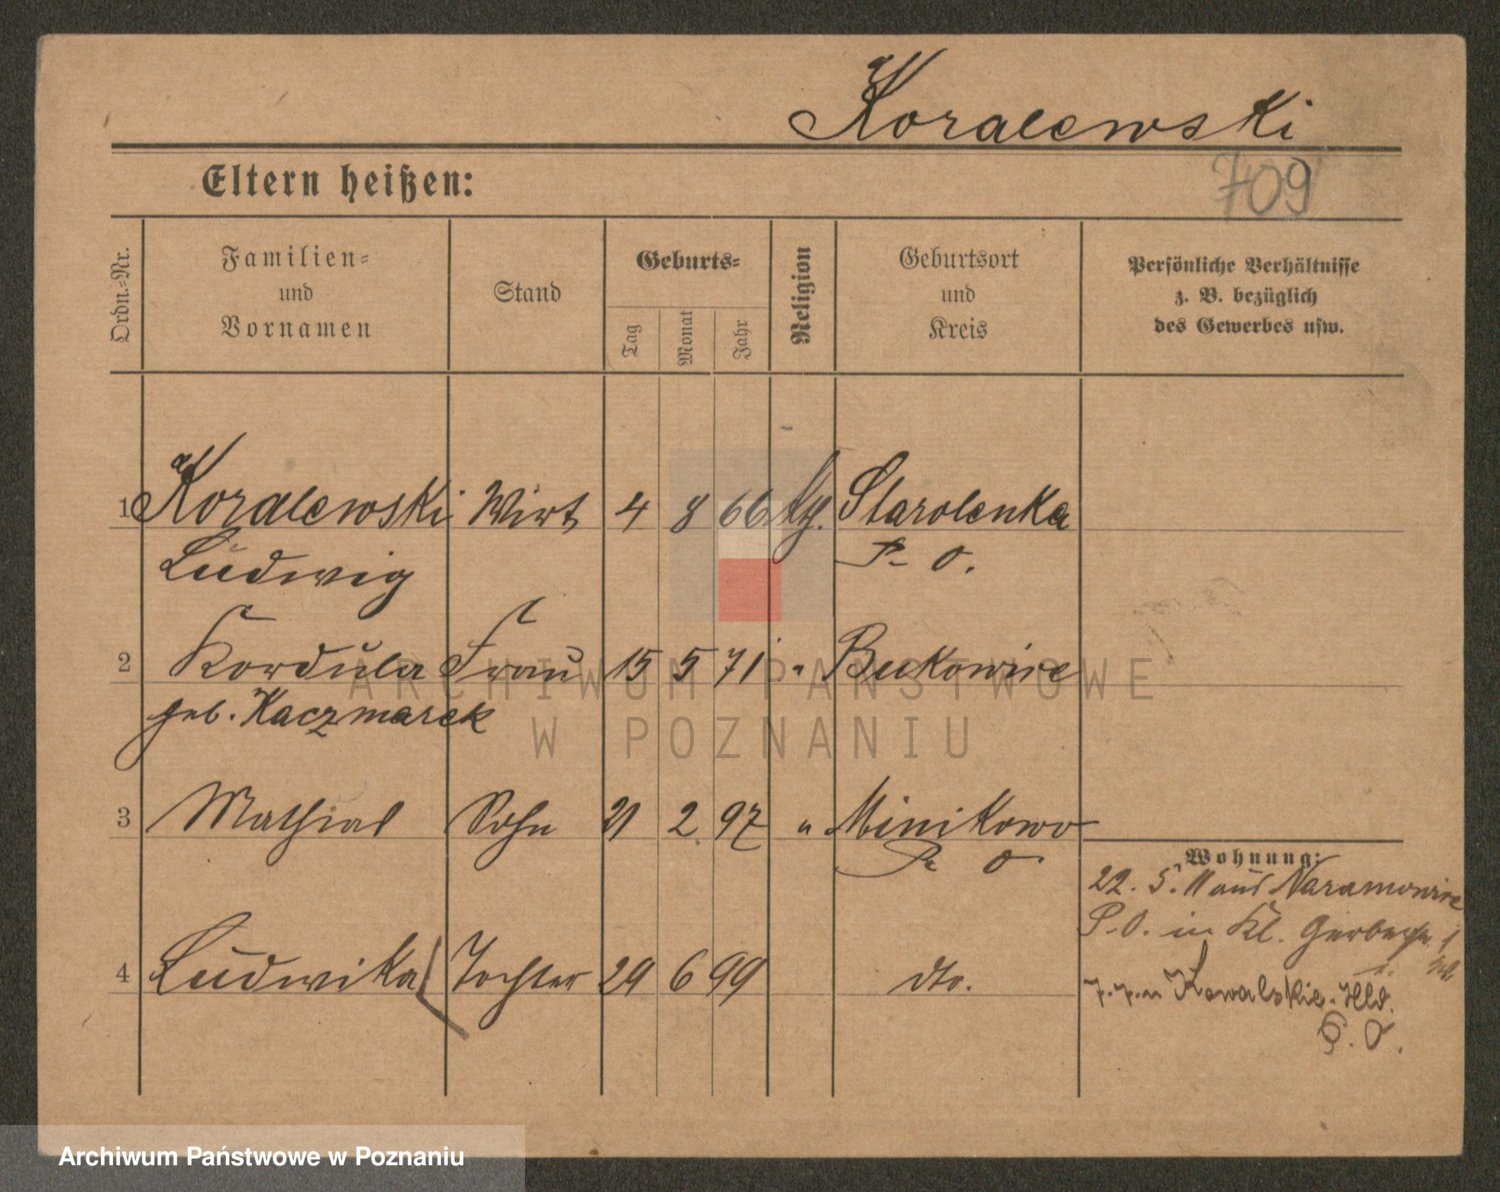 Koralewski
709
Eltern heißen:
Ordn.-Nr.
Familien-
und
Vornamen
Stand
Geburts-
Tag
Monat
Jahr
Religion
Geburtsort
und
Kreis
Persönliche Verhältnisse
z. B. bezüglich
des Gewerbes usw.
1 Koralewski Wirt 4 8 66 Starolenka
Ludwig P. O.
2 Kordula Frau 15 5 71 " Bukowiec
geb. Kaczmarek
3 Mathias Sohn 21 2 97 " Minikowo
P. O.
Wohnung:
22. 5. 11 aus Naramowice
P. O. in Kl. Gerberstr
4 Ludwika Tochter 29 6 99 dto.
Kowalskie
P. O.
ARCHIWUM PAŃSTWOWE
W POZNANIU
Archiwum Państwowe w Poznaniu